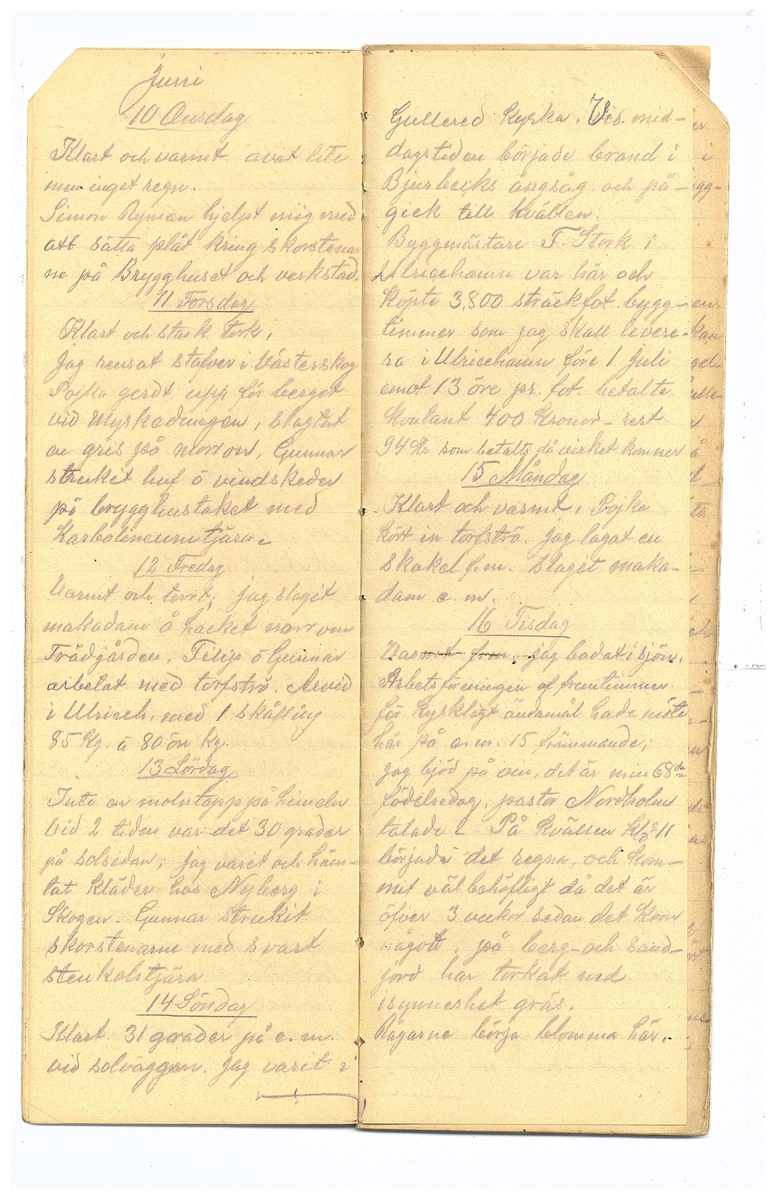 Juni
10 Onsdag
Klart och varmt avat lite
men inget regn.
Simon Ryman hjelpt mig med
att sätta plåt kring skorstenar-
ne på Brygghuset och verkstad.
11 Torsdag
Klart och stark tork,
Jag rensat stafver i Västerskog
Pojka gerdt upp för berget
vid Myrkedningen, slagtat
en gris på morron, Gunnar
strukit huf ô vindskeder
på brygghustaket med
Karbolineum tjära.
12 Fredag
Varmt och torrt; jag slagit
makadam å backet norr om
Trädgården, Filip ô Gunnar
arbetat med torfströ. Arvid
i Ulriceh. med 1
85 Kg. à 80 öre kg.
13 Lördag
Inte en molntapp på himeln
Vid 2 tiden var det 30 grader
på solsidan; jag varit och häm-
tat kläder hos Nyberg i
Skogen. Gunnar strukit
skorstenarne med svart
stenkolstjära
14 Söndag
Klart 31 grader på e. m.
vid solväggen. Jag varit i
Gullered kyrka. Vid mid-
dagstiden började brand i
Bjurbecks ångsåg och på-
gick till kvällen.
Byggmästare F. Stork i
Ulricehamn var här och
köpte 3,800 sträckfot bygg-
timmer som jag skall levere-
ra i Ulricehamn före 1 Juli
emot 13 öre pr. fot. betalte
kontant 400 Kronor - rest
94 Kr som betalts då virket kommer
15 Måndag
Klart och varmt, Pojka
kört in torfströ. Jag lagat en
skakel f.m. slaget maka-
dam e. m.
16 Tisdag
Varmt fram. jag badat i sjön.
Arbetsföreningen af fruntimmer
för kyrkligt ändamål hade möte
här på e. m. 15 främmande;
jag bjöd på vin, det är min 68de
födelsedag. pastor Nordholm
talade. På kvällen kl. 11
började det regna, och kom-
mit väl behöfligt då det är
öfver 3 veckor sedan det kom
något, på berg- och sand-
jord har torkat ned
isynnerhet gräs.
Rågarne börja blomma här.